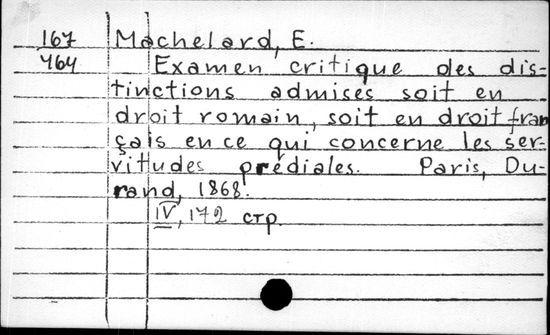 167 Machelard, E.
464 Examen critique des dis-
tinctions admises soit en
droit romain, soit en droit fran
çais en ce qui concerne les ser-
vitudes prédiales. Paris, Du-
rand, 1868.
IV, 172 стр.